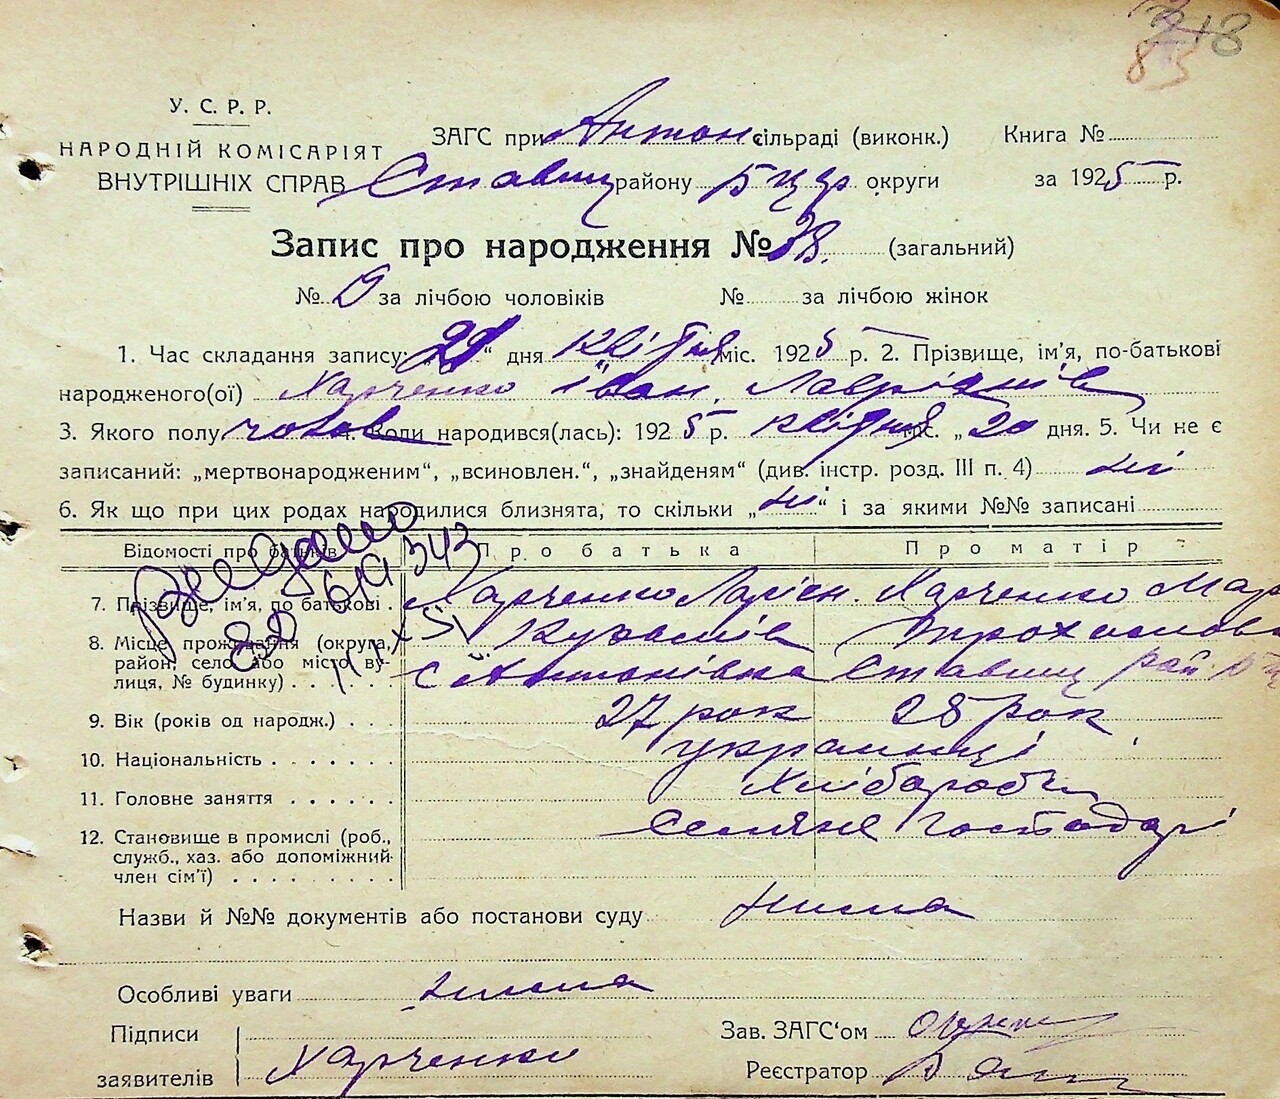 83
У. С. Р. Р.
НАРОДНІЙ КОМІСАРІЯТ
ВНУТРІШНІХ СПРАВ
ЗАГС при Антон сільраді (виконк.) Книга №
Ставищ району Б Цер округи за 1925 р.
Запис про народження № 38. (загальний)
№ за лічбою чоловіків № за лічбою жінок
1. Час складання запису: „21“ дня квітня міс. 1925 р. 2. Прізвище, ім’я, по-батькові
народженого(ої) Харченко Іван
3. Якого полу чолов 4. Коли народився(лась): 1925 р. квітня міс. „20 дня. 5. Чи не є
записаний: „мертвонародженим“, „всиновлен.“, „знайденям“ (див. інстр. розд. III п. 4) ні
6. Як що при цих родах народилися близнята, то скільки „ні“ і за якими №№ записані
Відомості про батьків Про батька Про матір
7. Прізвище, ім’я, по батькові Харченко Харченко Мар
8. Місце прожидання (округа, район, село або місто, вулиця, № будинку) с Антонівка Ставищ рай
Видано
9. Вік (років од народж.) 27 рок 28 рок
10. Національність українці
11. Головне заняття Хлібороби
12. Становище в промислі (роб., служб., хаз. або допоміжний член сім’ї) Селяне господарі
Назви й №№ документів або постанови суду нима
Особливі уваги нима
Підписи заявителів Харченко
Зав. ЗАГС‘ом
Реєстратор